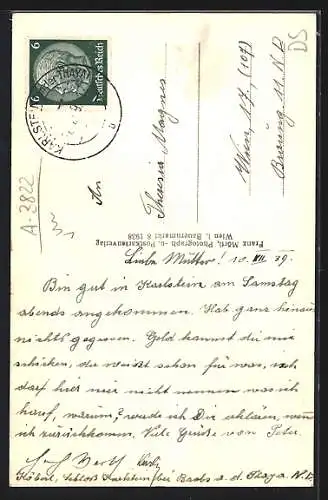 DS
A-3822
6
6
Deutsches Reich
KARLSTEIN
An
Theresia Magnes
Wien, 17, (107)
Franz Mörtl, Photograph- u. Postkartenverlag
Wien I, Bauernmarkt 8 1938
Liebe Mutter! 10. VII. 39.
Bin gut in Karlstein am Samstag
abends angekommen. Hab ganz
nichts gegessen. Geld kannst du mir
schicken, du weißt schon für was, ich
darf hier mir nicht nennen was ich
warum? werde ich Dir erklären, wenn
ich zurückkomme. Viele Grüße von Peter.
Schloss bei Raabs a. d. Thaya N.D.